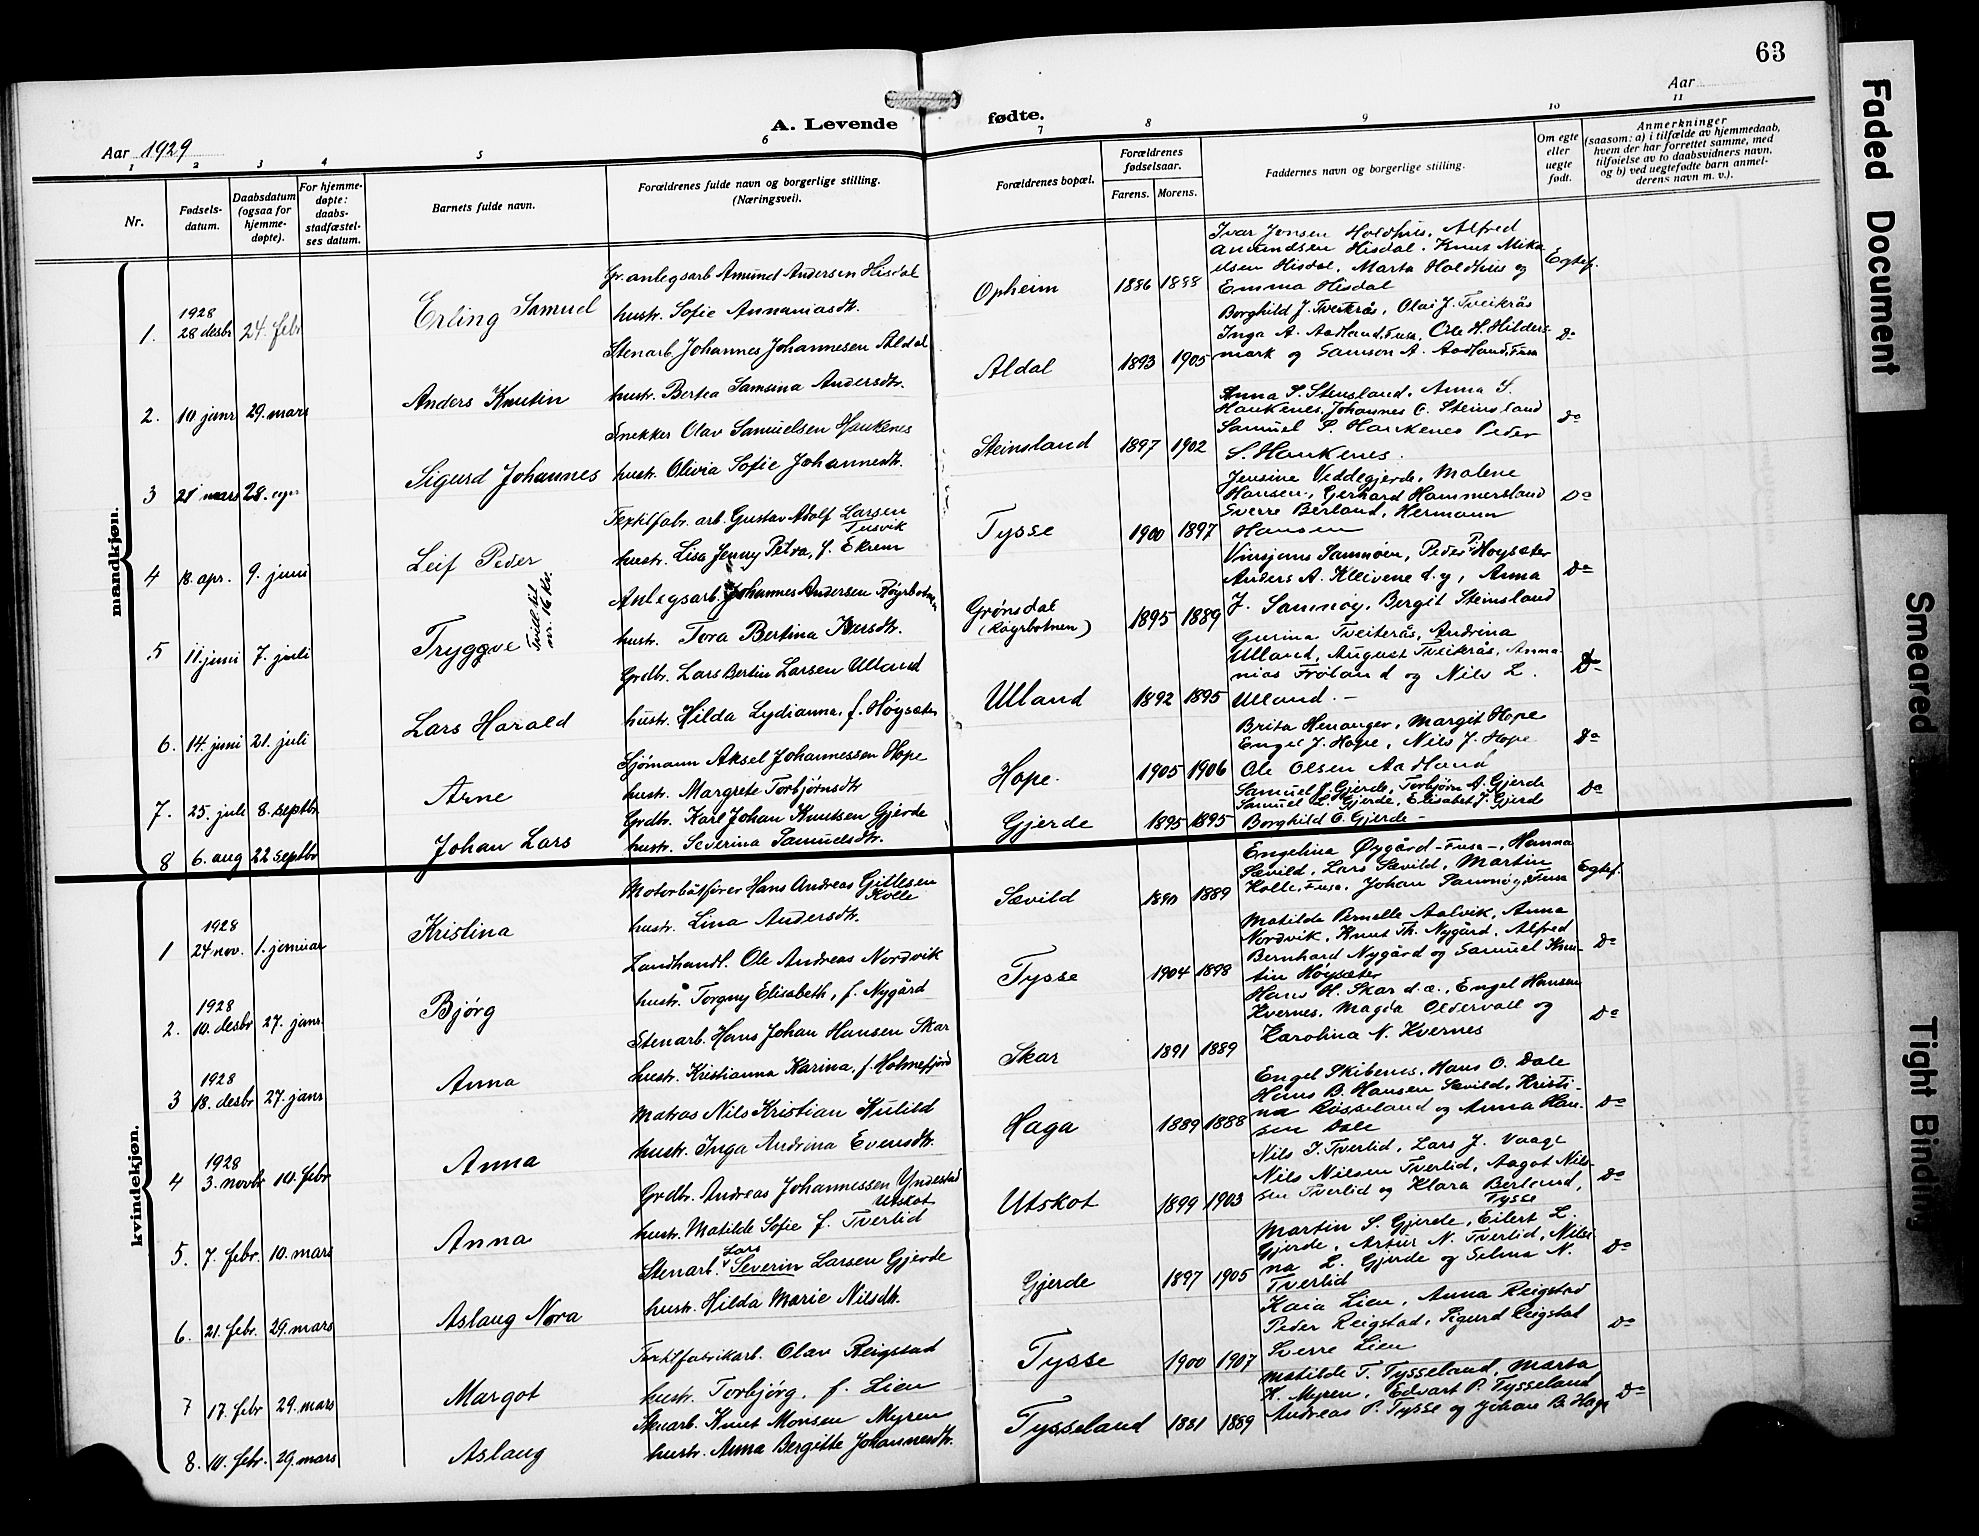 63
Aar 1929
A. Levende fødte.
Aar
1 2 3 4 5 6 7 8 9 10 11
Nr.
Fødsels-
datum.
Daabsdatum
(ogsaa for
hjemme-
døpte).
For hjemme-
døpte:
daabs-
stadfæstel-
ses datum.
Barnets fulde navn.
Forældrenes fulde navn og borgerlige stilling.
(Næringsvei).
Forældrenes bopæl.
Forældrenes
fødselsaar.
Farens. Morens.
Faddernes navn og borgerlige stilling.
Om egte
eller
uegte
født.
Anmerkninger
(saasom: a) i tilfælde av hjemmedaab,
hvem der har forrettet samme, med
tilføielse av to daabsvidners navn,
og b) ved uegtefødte barn anmel-
derens navn m. v.).
mandkjøn.
1. 1928 28 desbr 24. febr Erling Samuel
Gr. anlegsarb Amund Andersen Hisdal
hustr. Sofie Annaniasdtr.
Opheim 1886 1888
Ivar Jensen Holdhus, Alfred
Amundsen Hisdal. Knut Mika
elsen Hisdal, Marta Holdhus og
Emma Hisdal
Egtef.
2. 10 janr 29. mars Anders Knutin
Stenarb. Johannes Johannesen Aldal
hustr. Bertea Samsina Andersdtr.
Aldal 1893 1905
Borghild J. Tveiterås, Olai J. Tveiterås
Inga A. Aadland, Fusa, Ole H. Hilders-
mark og Samson A. Aadland, Fusa
Do
3 21 mars 28. apr Sigurd Johannes
Snekker Olav Samuelsen Haukenes
hustr. Olivia Sofie Johannesdtr.
Steinsland 1897 1902
Anna S. Steinsland. Anna S.
Haukenes, Johannes O. Steinsland
Samuel S. Haukenes Peder
S. Haukenes.
Do
4 18. apr. 9. juni Leif Peder
Textilfabr. arb. Gustav Adolf Larsen
Tusvik
hustr. Lisa Jenny Petra, f. Ekrem
Tysse 1900 1897
Jensine Veddegjerde, Malene
Hansen, Gerhard Hammersland
Sverre Berland, Hermann
Hansen
Do
5 11. juni 7. juli Tryggve
Tvill. til
nr. 16 kv.
Anlegsarb. Johannes Andersen Røyrbotnen
hustr. Tora Bertina Iversdtr.
Grønsdal
(Røyrbotnen) 1895 1889
Vinsjans Samnøen, Peder P. Høysæter
Anders A. Kleivene d. y, Anna
J. Samnøy, Bergit Steinsland
Do
6. 14. juni 21. juli Lars Harald
Grdbr. Lars Bertin Larsen Ulland
hustr. Hilda Lydianna, f. Høysæter
Ulland 1892 1895
Gurina Tveiterås, Andrina
Ulland, August Tveiterås, Anna-
nias Frøland og Nils L.
Ulland. -
Do
7. 25. juli 8. septbr Arne
Sjømann Aksel Johannessen Hope
hustr. Margrete Torbjørnsdtr
Hope. 1905 1906
Brita Henanger, Margit Hope
Engel J. Hope, Nils J. Hope
Ole Olsen Aadland
Do
8 6. aug 22 septbr Johan Lars
Grdbr. Karl Johan Knutsen Gjerde
hustr. Severina Samuelsdtr.
Gjerde 1895 1895
Samuel J. Gjerde, Torbjørn A. Gjerde
Samuel L. Gjerde, Elisabet J. Gjerde
Borghild O. Gjerde -
Do
kvindekjøn.
1 1928 24 nov. 1. januar Kristina
Motorbåtfører Hans Andreas Gittlesen
Kolle
hustr. Lina Andersdtr.
Sævild 1890 1889
Engelina Øygård - Fusa -, Hanna
Sævild, Lars Sævild, Martin
Kolle, Fusa, Johan Samnøy, Fusa
Egtef.
2. 1928 10. desbr 27. janr Bjørg
Landhandl. Ole Andreas Nordvik
hustr. Torgny Elisabeth, f. Nygård
Tysse 1904 1898
Matilde Pernelle Aalvik, Anna
Nordvik, Knut Th. Nygård, Alfred
Bernhard Nygård og Samuel Knu-
tin Høysæter
Do
3 1928 18. desbr 27. janr Anna
Stenarb. Hans Johan Hansen Skar
hustr. Kristianna Karina, f. Holmefjord
Skar 1891 1889
Hans H. Skar d. æ., Engel Hansen
Kvernes, Magda Oldervoll og
Karolina N. Kvernes
Do
4 1928 3. novbr 10. febr Anna
Matros Nils Kristian Kulild
hustr. Inga Andrina Evensdtr.
Haga 1889 1888
Engel Skibenes, Hans O. Dale
Hans B. Hansen Sævild, Kristi-
na Røsseland og Anna Han-
sen Dale
Do
5. 7. febr. 10. mars Anna
Grdbr. Andreas Johannessen Yndestad
Utskot
hustr. Matilde Sofie f. Tverlid
Utskot 1899 1903
Nils J. Tverlid, Lars J. Vaage
Nils Nilsen Tverlid, Aagot Nils-
sen Tverlid og Klara Berland,
Tysse
Do
6. 21. febr. 29. mars Aslaug Nora
Stenarb. Lars Severin Larsen Gjerde
hustr. Hilda Marie Nilsdtr.
Gjerde 1897 1905
Martin S. Gjerde, Eilert L.
Gjerde, Artur N. Tverlid, Nilsi-
na L. Gjerde og Selma N.
Tverlid
Do
7 17. febr 29. mars Margot
Textilfabrikarb. Olav Reigstad
hustr. Torbjørg, f. Lien
Tysse 1900 1907
Kaia Lien, Anna Reigstad
Peder Reigstad, Sigurd Reigstad
Sverre Lien
Do
8. 10. febr. 29. mars Aslaug
Stenarb. Knut Monsen Myren
hustr. Anna Bergitte Johannesdtr.
Tysseland 1881 1889
Matilde T. Tysseland, Marta
K. Myren, Edvart P. Tysseland
Andreas P. Tysse og Johan B. Haga
Do
Faded Document
Smeared
Tight Binding